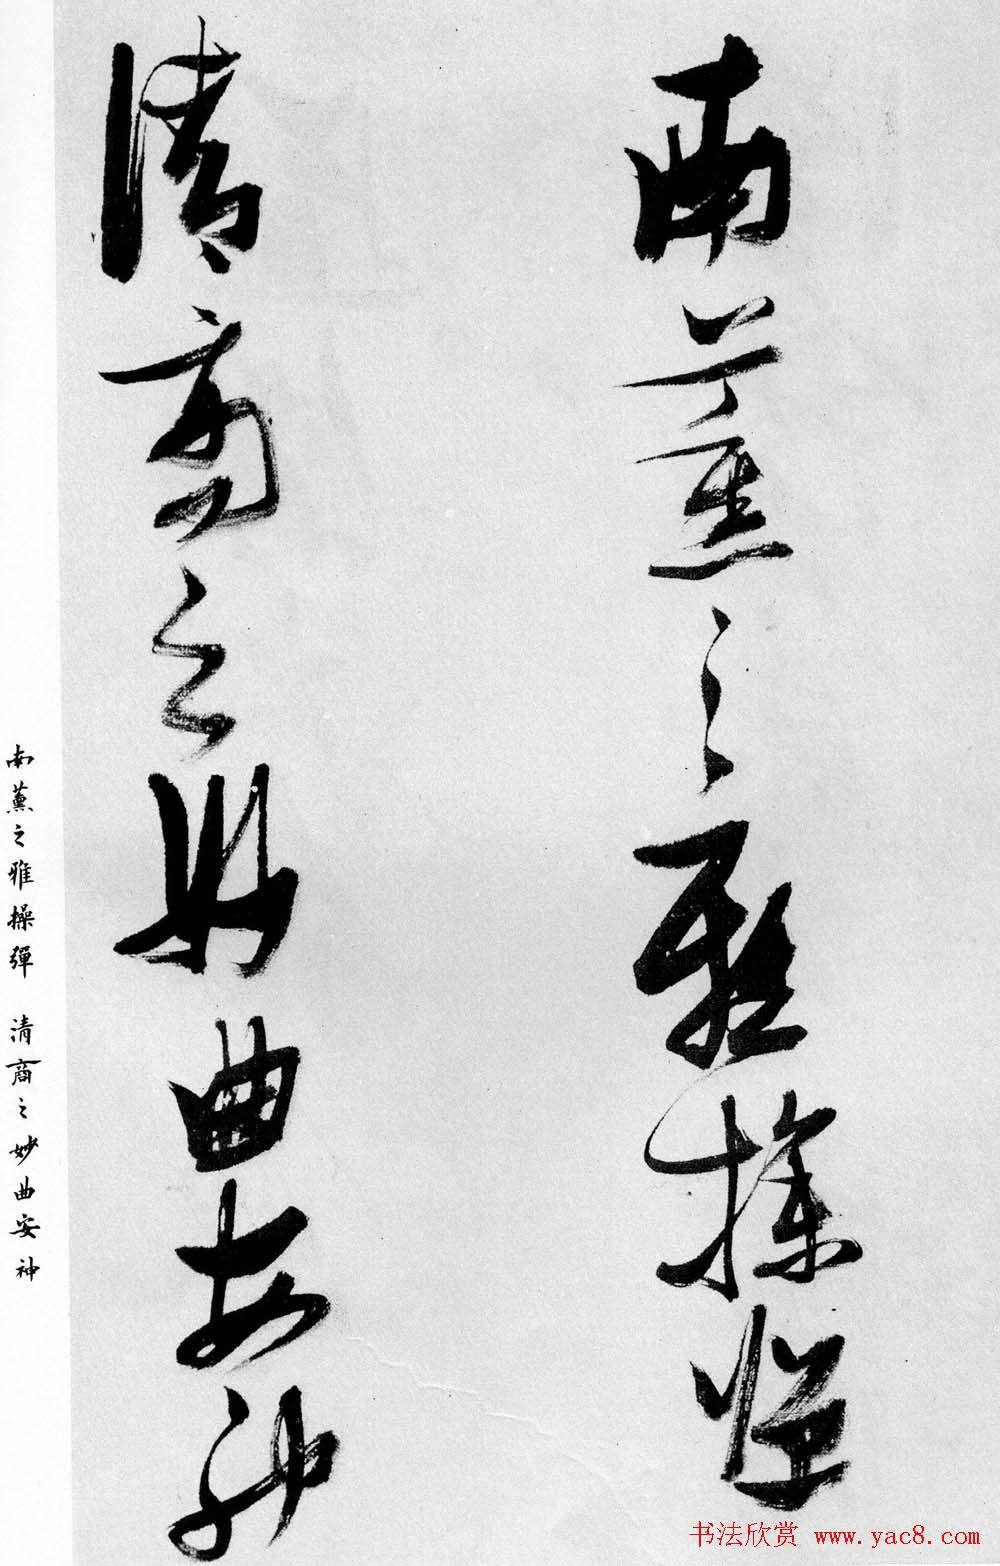 南薰之雅操彈
清商之妙曲安神
南薰之雅操彈 清商之妙曲安神
书法欣赏 www.yac8.com